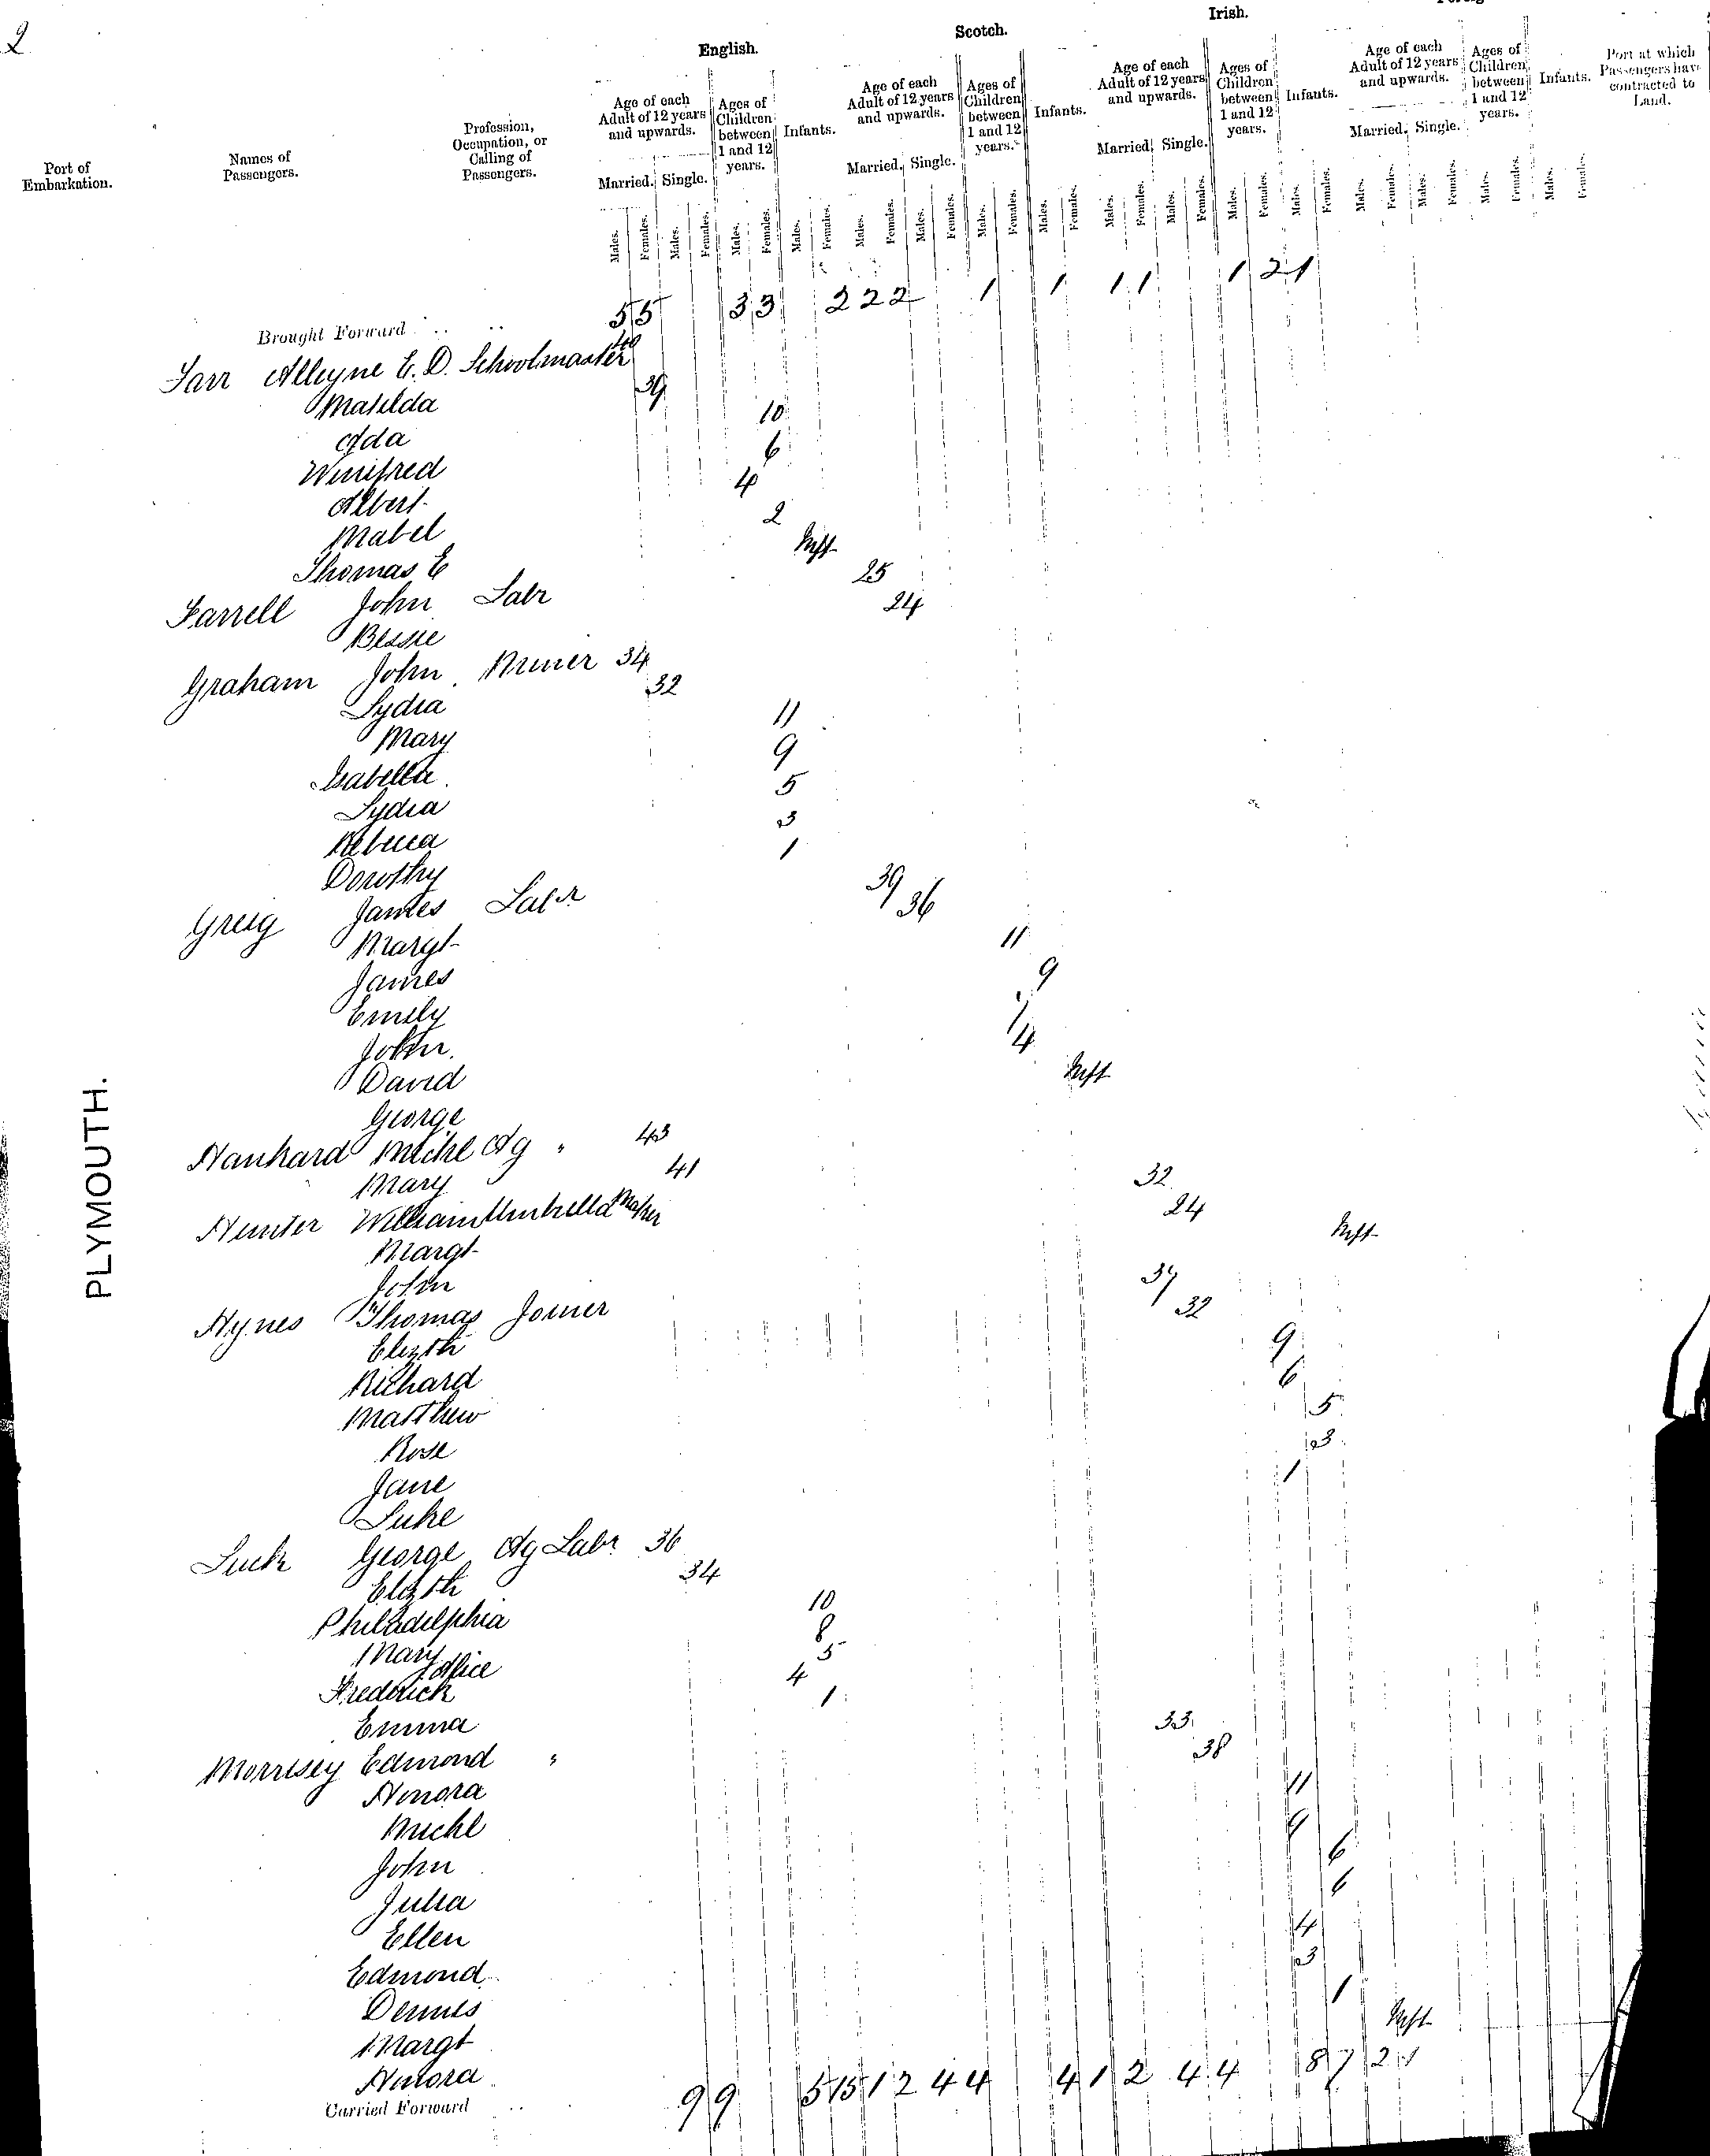 2
English.
Scotch.
Irish.
Port of Embarkation.
Names of Passengers.
Profession, Occupation, or Calling of Passengers.
Age of each Adult of 12 years and upwards. Ages of Children between 1 and 12 years. Infants.
Married. Single.
Age of each Adult of 12 years and upwards. Ages of Children between 1 and 12 years. Infants.
Married. Single.
Age of each Adult of 12 years and upwards. Ages of Children between 1 and 12 years. Infants.
Married. Single.
Age of each Adult of 12 years and upwards. Ages of Children between 1 and 12 years. Infants.
Married. Single.
Port at which Passengers have contracted to Land.
Males. Females. Males. Females. Males. Females. Males. Females. Males. Females. Males. Females. Males. Females. Males. Females. Males. Females. Males. Females. Males. Females. Males. Females. Males. Females. Males. Females. Males. Females. Males. Females.
Brought Forward 5 5 3 3 2 2 2 1 1 1 1 1 2 1
Farr Alleyne E. D. Schoolmaster 40
Matilda 39
Ada 10
Winifred 6
Albert 4
Mabel 2
Thomas E Inft
Farrell John Labr 25
Bessie 24
Graham John Miner 34
Lydia 32
Mary 11
Isabella 9
Lydia 5
Rebecca 3
Dorothy 1
Greig James Labr 39
Margt 36
James 11
Emily 9
John 7
David 4
George Inft
Hanhard Michl Ag " 43
Mary 41
Hunter William Umbrella Maker 32
Margt 24
John Inft
Hynes Thomas Joiner 34
Elizth 32
Richard 9
Matthew 6
Rose 5
Jane 3
Luke 1
Luck George Ag Labr 36
Elizth 34
Philadelphia 10
Mary 8
Alice 5
Frederick 4
Emma 1
Morrisey Edmond " 33
Honora 38
Michl 11
John 9
Julia 6
Ellen 6
Edmond 4
Dennis 3
Margt 1
Honora Inft
Carried Forward 9 9 5 15 1 2 4 4 4 1 2 4 4 8 7 2 1
PLYMOUTH.